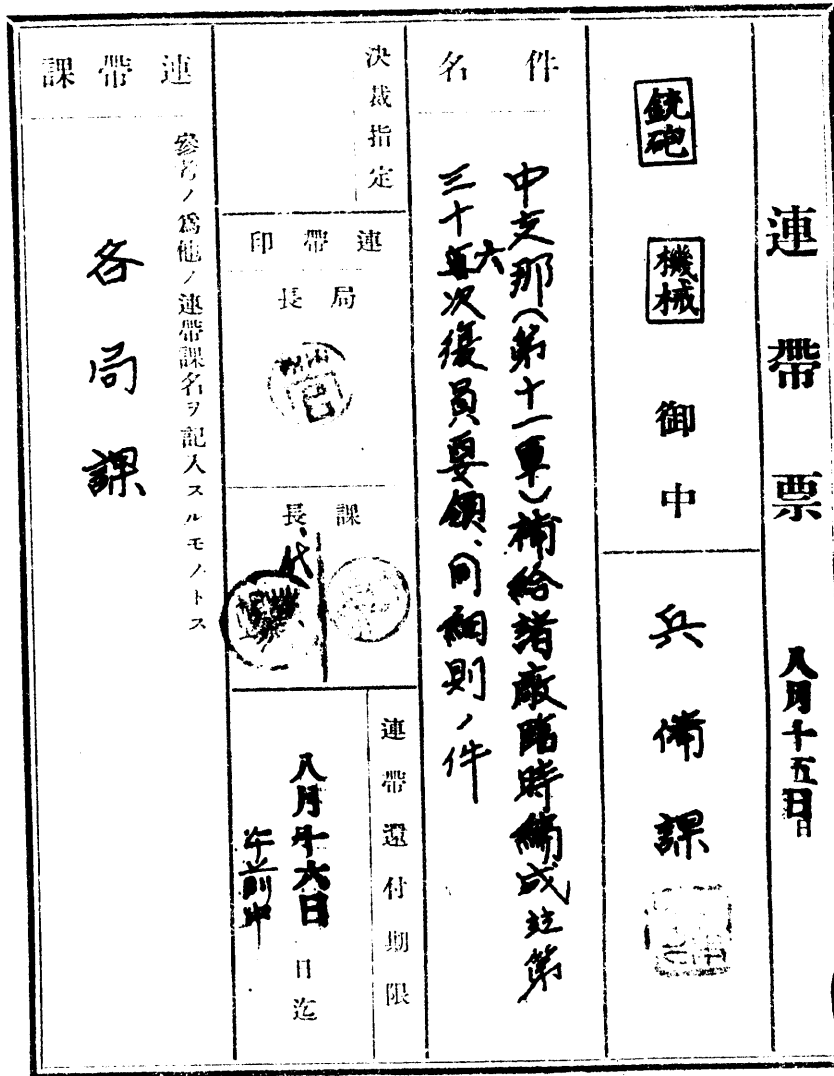 連帶票
八月十五日
日
銃砲 機械 御中
兵備課
件名
中支那(第十一軍)補給諸廠臨時編成並第
三十六次復員要領、同細則ノ件
決裁指定
連帶印
局長
課長
代
連帶還付期限
八月十六日
午前中
日迄
連帶課
參考ノ爲他ノ連帶課名ヲ記入スルモノトス
各局課